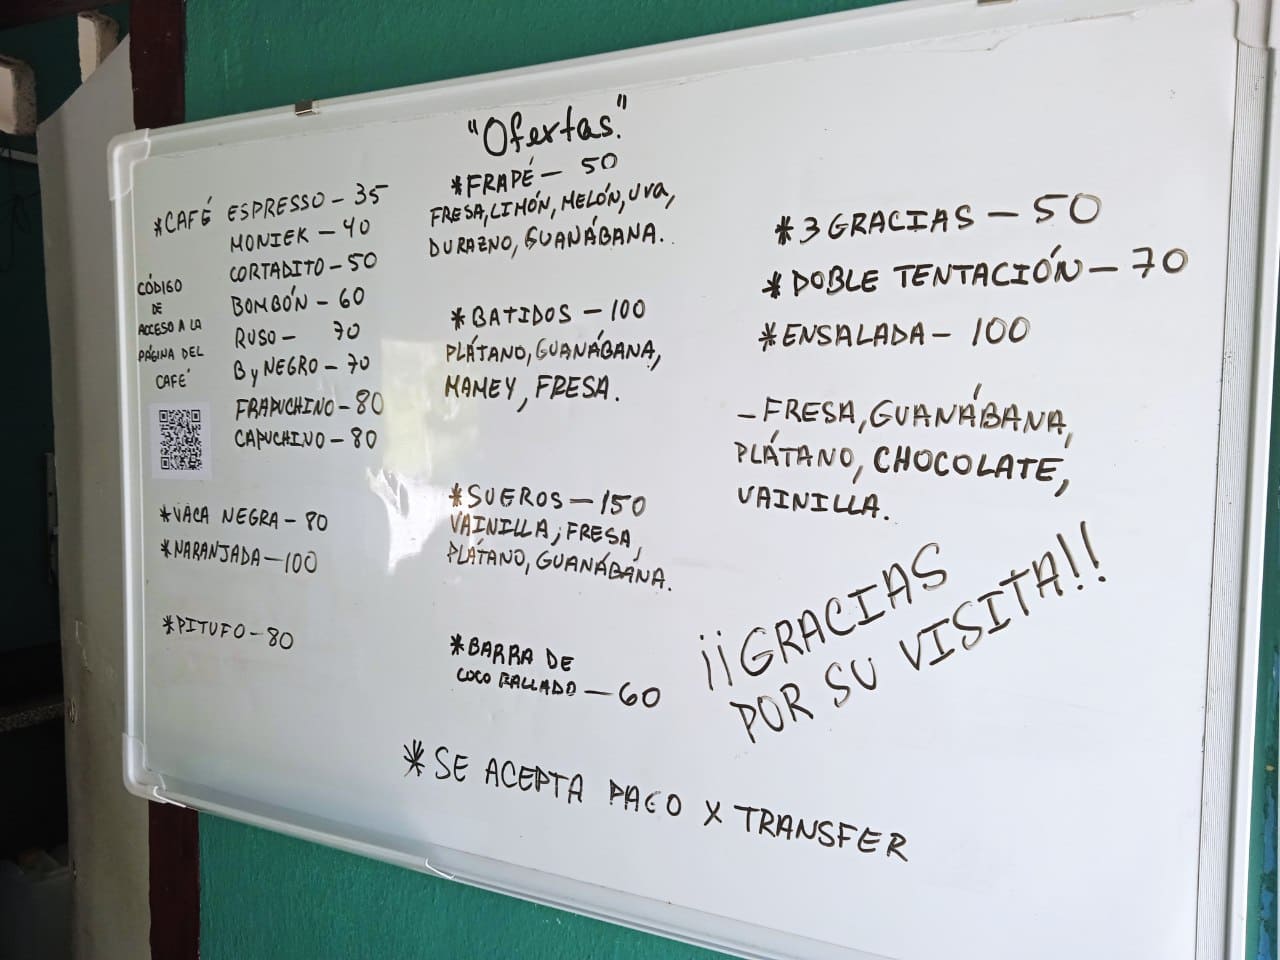 "Ofertas."
*CAFÉ ESPRESSO - 35
MONIEK - 40
CORTADITO - 50
BOMBÓN - 60
RUSO - 70
B y NEGRO - 70
FRAPUCHINO - 80
CAPUCHINO - 80
CÓDIGO
DE
ACCESO A LA
PÁGINA DEL
CAFÉ
*VACA NEGRA - 80
*NARANJADA - 100
*PITUFO - 80
*FRAPÉ - 50
FRESA, LIMÓN, MELÓN, UVA,
DURAZNO, GUANÁBANA.
*BATIDOS - 100
PLÁTANO, GUANÁBANA,
MAMEY, FRESA.
*SUEROS - 150
VAINILLA, FRESA,
PLÁTANO, GUANÁBANA.
*BARRA DE
COCO RALLADO - 60
*3 GRACIAS - 50
*DOBLE TENTACIÓN - 70
*ENSALADA - 100
- FRESA, GUANÁBANA,
PLÁTANO, CHOCOLATE,
VAINILLA.
¡¡GRACIAS
POR SU VISITA!!
*SE ACEPTA PAGO X TRANSFER